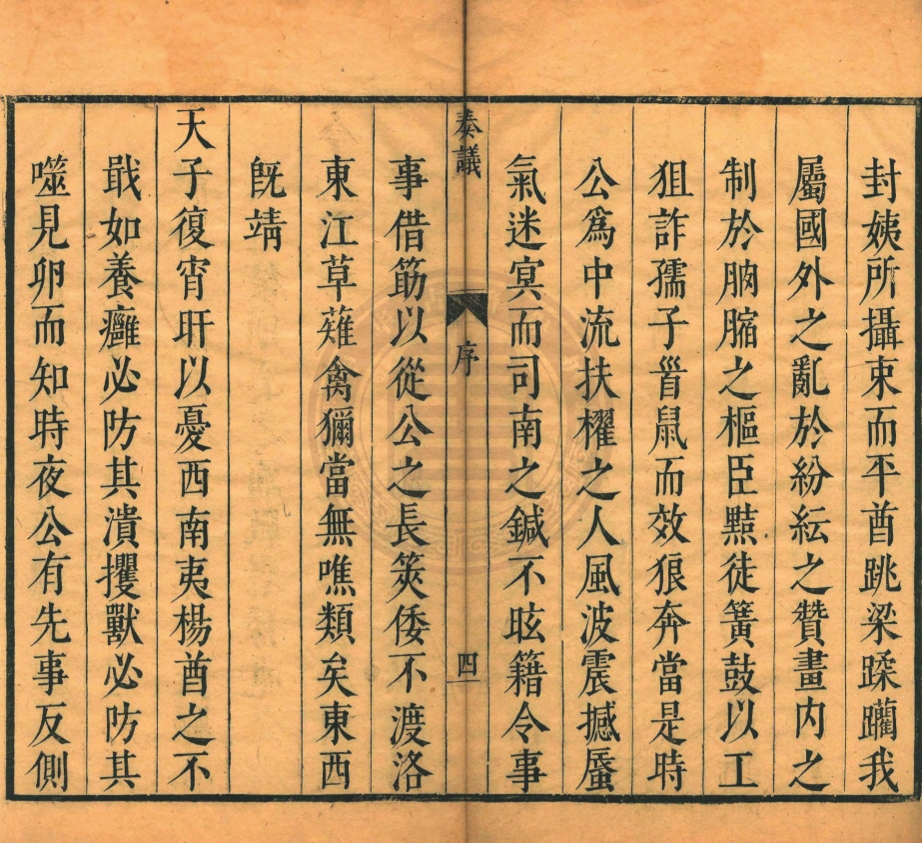 封姨所攝束而平酋跳梁蹂躪我
屬國外之亂於紛紜之贊畫内之
制於朒䐶之樞臣黠徒簧鼓以工
狙詐孺子首鼠而效狼奔當是時
公爲中流扶櫂之人風波震撼蜃
氣迷冥而司南之鍼不昡籍令事
奏議
序
四
事借筯以從公之長筴倭不渡洛
東江草薙禽獮當無噍類矣東西
旣靖
天子復宵旰以憂西南夷楊酋之不
戢如養癰必防其潰攖獸必防其
噬見卵而知時夜公有先事反側